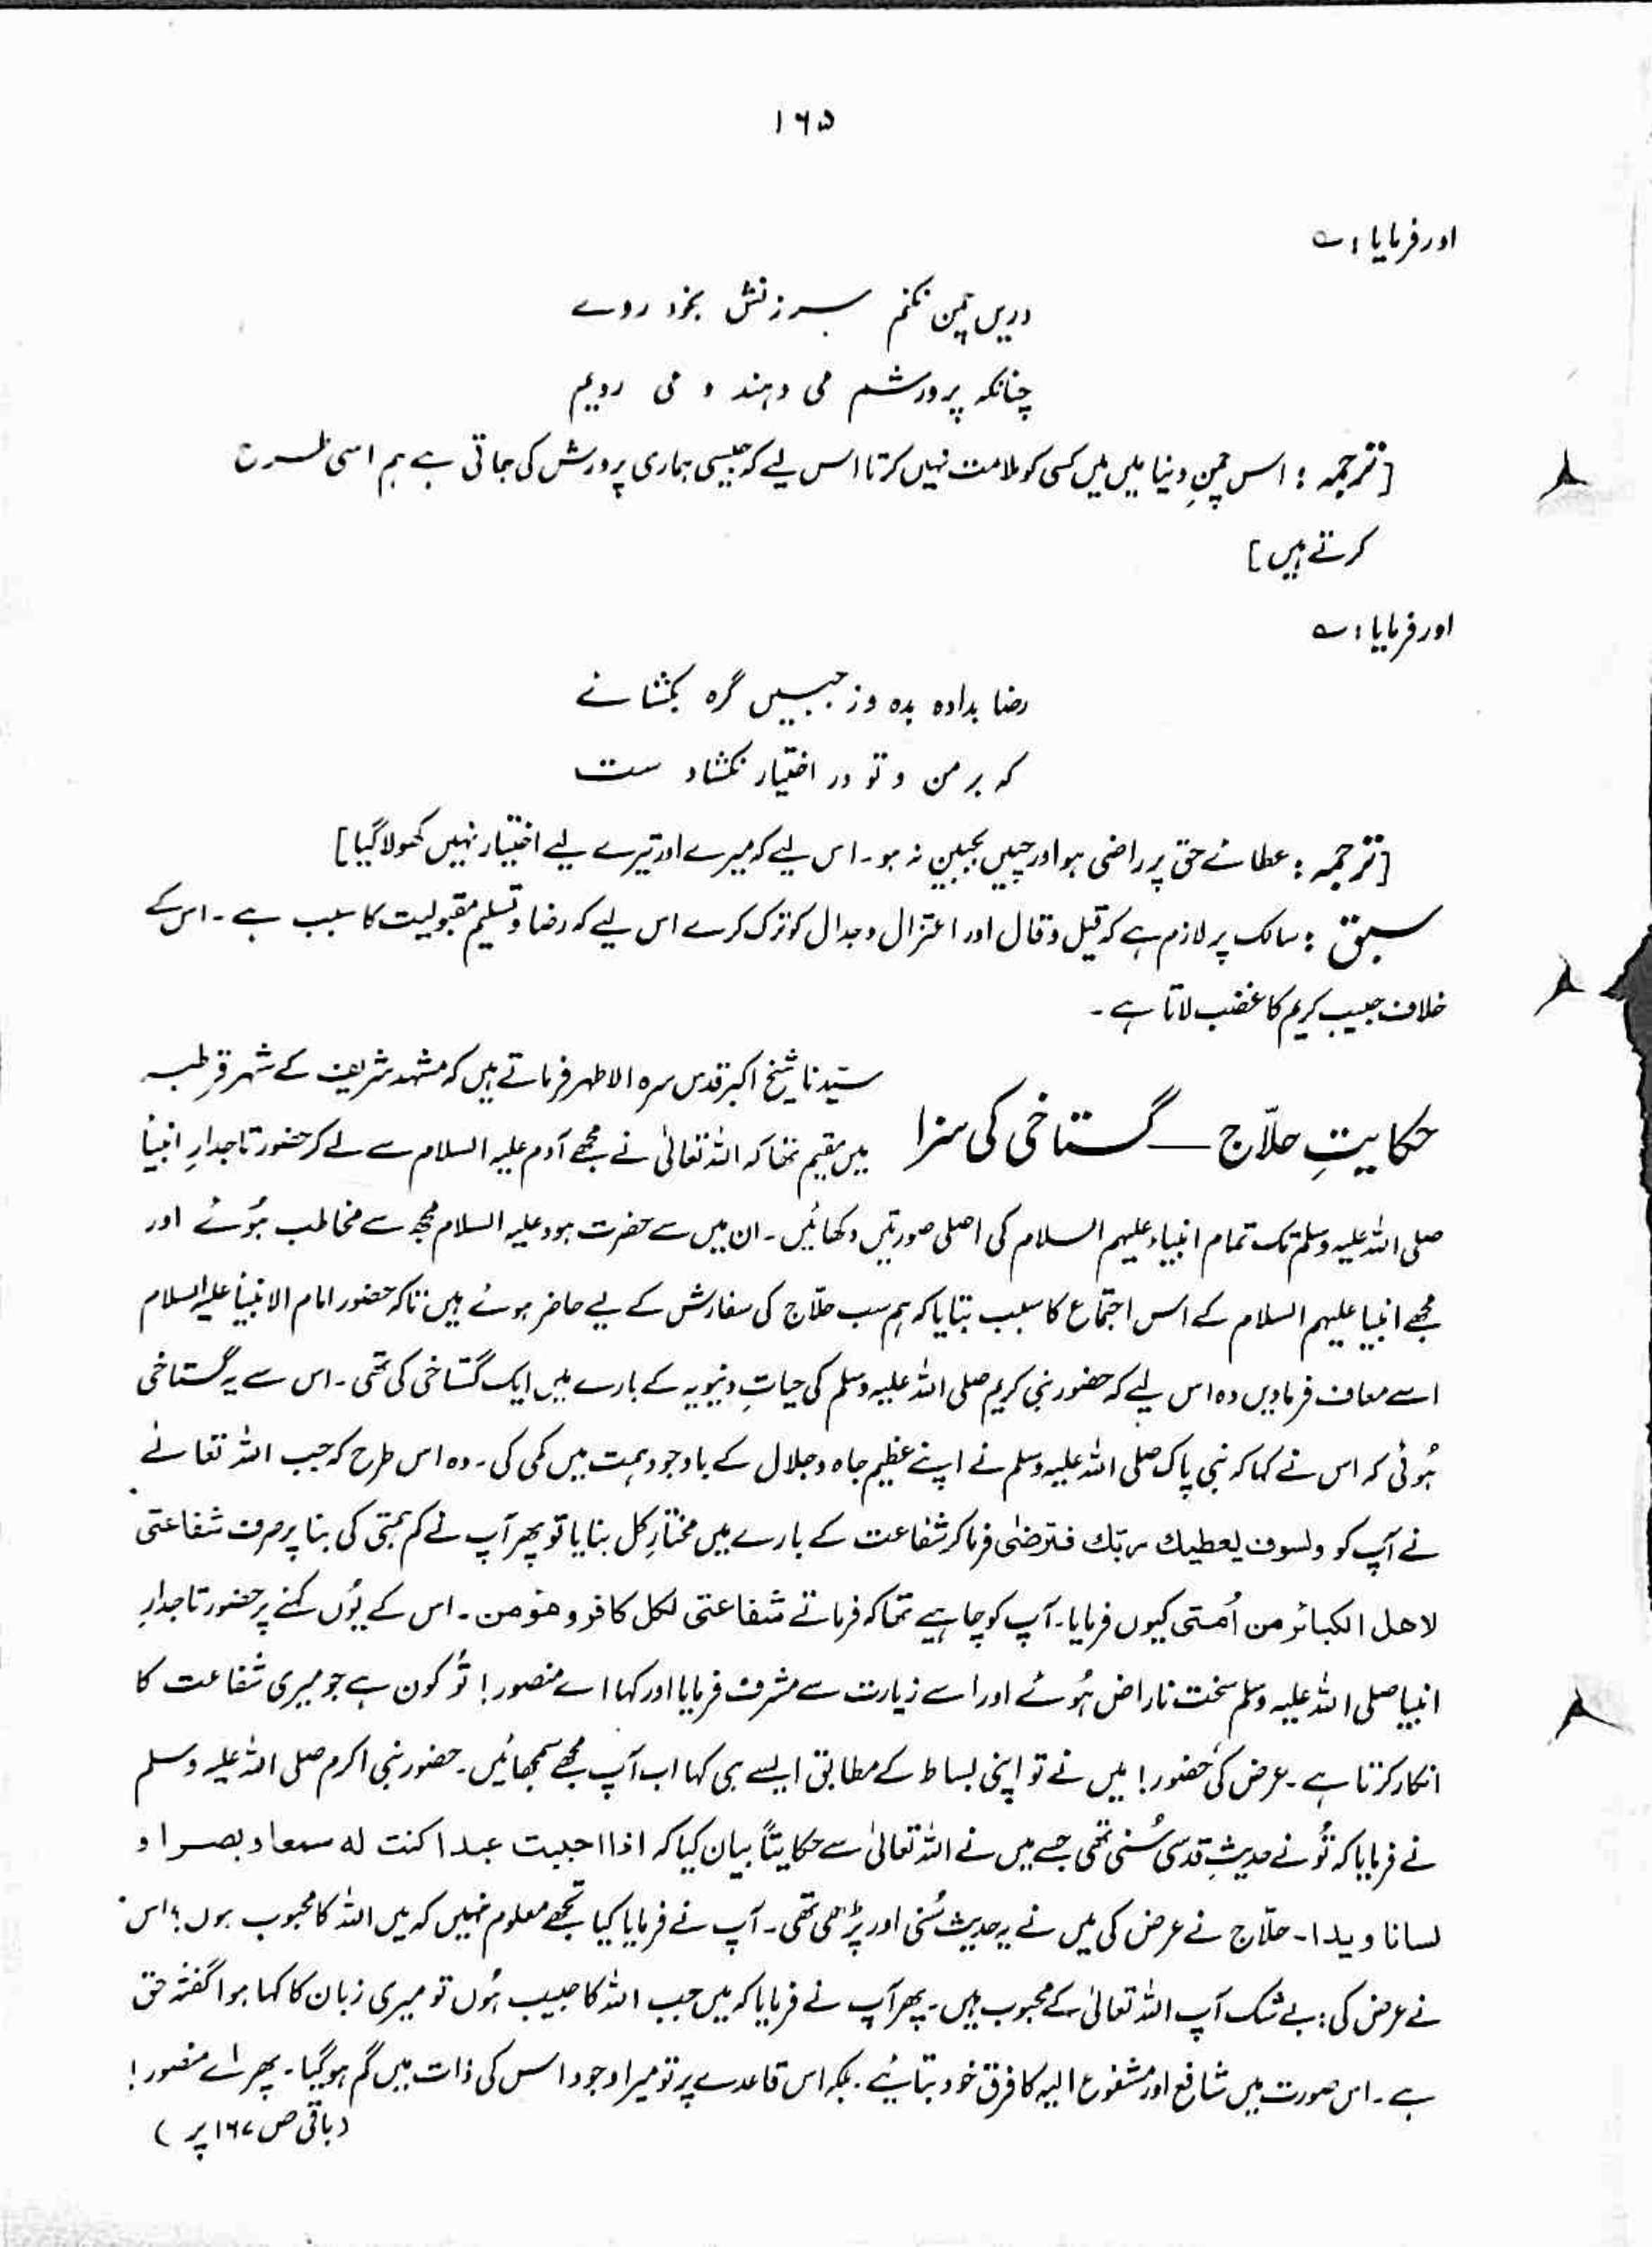 ۱۶۵
اور فرمایا : ؎
دریں چمن نکنم سرزنش بخود روے
چنانکہ پرورشم می دہند و می رویم
[ترجمہ : اس چمنِ دنیا میں میں کسی کو ملامت نہیں کرتا اس لیے کہ جیسی ہماری پرورش کی جاتی ہے ہم اسی طرح
کرتے ہیں]
اور فرمایا : ؎
رضا بدادہ بدہ وز جبیں گرہ بکشائے
کہ بر من و تو در اختیار نکشاد ست
[ترجمہ : عطائے حق پر راضی ہو اور چیں بجبین نہ ہو ۔ اس لیے کہ میرے اور تیرے لیے اختیار نہیں کھولا گیا]
سبق : سالک پر لازم ہے کہ قیل و قال اور اعتزال و جدال کو ترک کرے اس لیے کہ رضا و تسلیم مقبولیت کا سبب ہے ۔ اس کے
خلاف حبیب کریم کا غضب لاتا ہے ۔
حکایتِ حلّاج — گستاخی کی سزا
سیّدنا شیخ اکبر قدس سرہ الاطہر فرماتے ہیں کہ مشہد شریف کے شہر قرطبہ
میں مقیم تھا کہ اللہ تعالیٰ نے مجھے آدم علیہ السلام سے لے کر حضور تاجدارِ انبیأ
صلی اللہ علیہ وسلم تک تمام انبیاء علیہم السلام کی اصلی صورتیں دکھائیں ۔ ان میں سے حضرت ہود علیہ السلام مجھ سے مخاطب ہُوئے اور
مجھے انبیا علیہم السلام کے اس اجتماع کا سبب بتایا کہ ہم سب حلّاج کی سفارش کے لیے حاضر ہوئے ہیں تاکہ حضور امام الانبیأ علیہ السلام
اسے معاف فرما دیں وہ اس لیے کہ حضور نبی کریم صلی اللہ علیہ وسلم کی حیاتِ دنیویہ کے بارے میں ایک گستاخی کی تھی ۔ اس سے یہ گستاخی
ہُوئی کہ اس نے کہا کہ نبی پاک صلی اللہ علیہ وسلم نے اپنے عظیم جاہ و جلال کے باوجود ہمت میں کمی کی ۔ وہ اس طرح کہ جب اللہ تعالےٰ
نے آپ کو ولسوف یعطیك ربّك فترضىٰ فرما کر شفاعت کے بارے میں مختارِ کل بنایا تو پھر آپ نے کم ہمتی کی بنا پر صرف شفاعتی
لاھل الکبائر من اُمتی کیوں فرمایا ۔ آپ کو چاہیے تھا کہ فرماتے شفاعتی لکل کافر و مؤمن ۔ اس کے یُوں کہنے پر حضور تاجدارِ
انبیا صلی اللہ علیہ وسلم سخت ناراض ہُوئے اور اسے زیارت سے مشرف فرمایا اور کہا اے منصور ! تُو کون ہے جو میری شفاعت کا
انکار کرتا ہے ۔ عرض کی حضور ! میں نے تو اپنی بساط کے مطابق ایسے ہی کہا اب آپ مجھے سمجھائیں ۔ حضور نبی اکرم صلی اللہ علیہ وسلم
نے فرمایا کہ تُو نے حدیثِ قدسی سُنی تھی جسے میں نے اللہ تعالیٰ سے حکایتاً بیان کیا کہ اذا احببت عبدا کنت له سمعا و بصرا و
لسانا و یدا ۔ حلّاج نے عرض کی میں نے یہ حدیث سُنی اور پڑھی تھی ۔ آپ نے فرمایا کیا تجھے معلوم نہیں کہ میں اللہ کا محبوب ہوں ؟ اس
نے عرض کی : بے شک آپ اللہ تعالیٰ کے محبوب ہیں ۔ پھر آپ نے فرمایا کہ میں جب اللہ کا حبیب ہُوں تو میری زبان کا کہا ہوا گفتۂ حق
ہے ۔ اس صورت میں شافع اور مشفوع الیہ کا فرق خود بتائیے ۔ بلکہ اس قاعدے پر تو میرا وجود اس کی ذات میں گم ہو گیا ۔ پھر اے منصور !
( باقی ص ۱۶۷ پر )